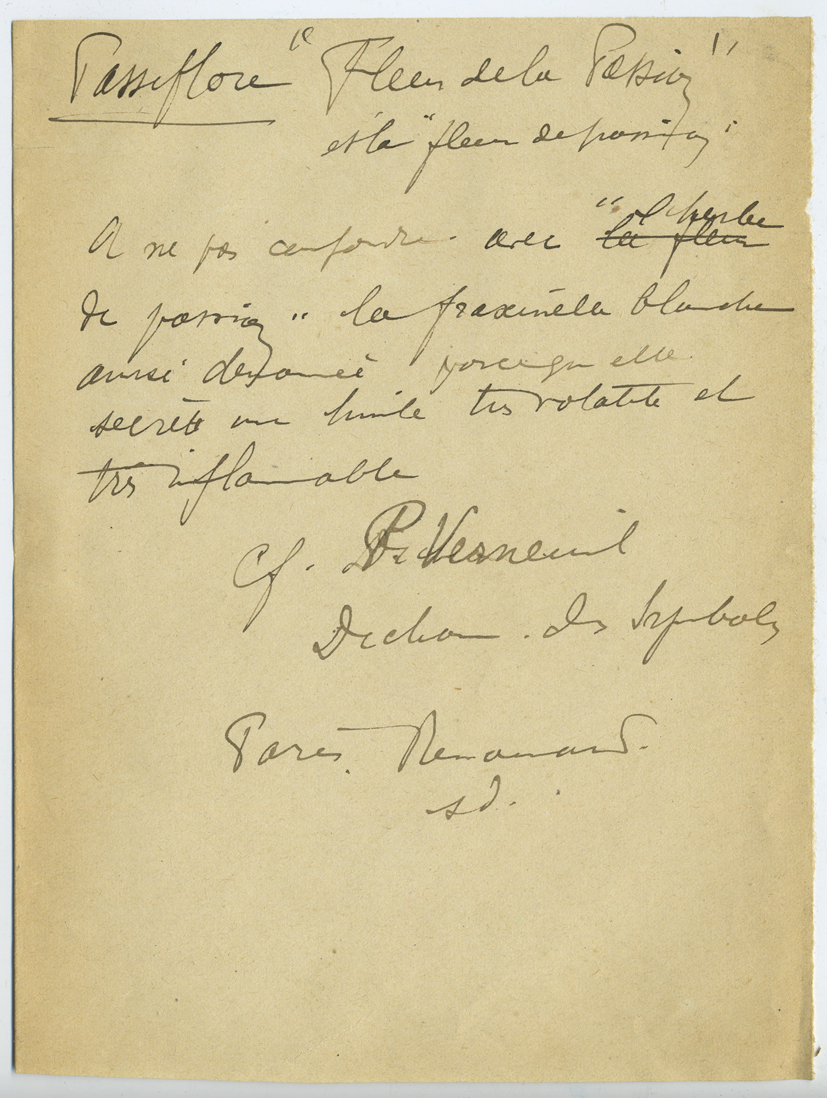 Passiflore "Fleur de la Passion"
est la "fleur de passion"
A ne pas confondre avec "la fleur l'herbe
de passion" la fraxinella blanche
ainsi dénomée parce qu elle
secrète une huile très volatile et
très inflammable
Cf. Verneuil
Diction. des Symboles
Paris. Renouard.
sd.